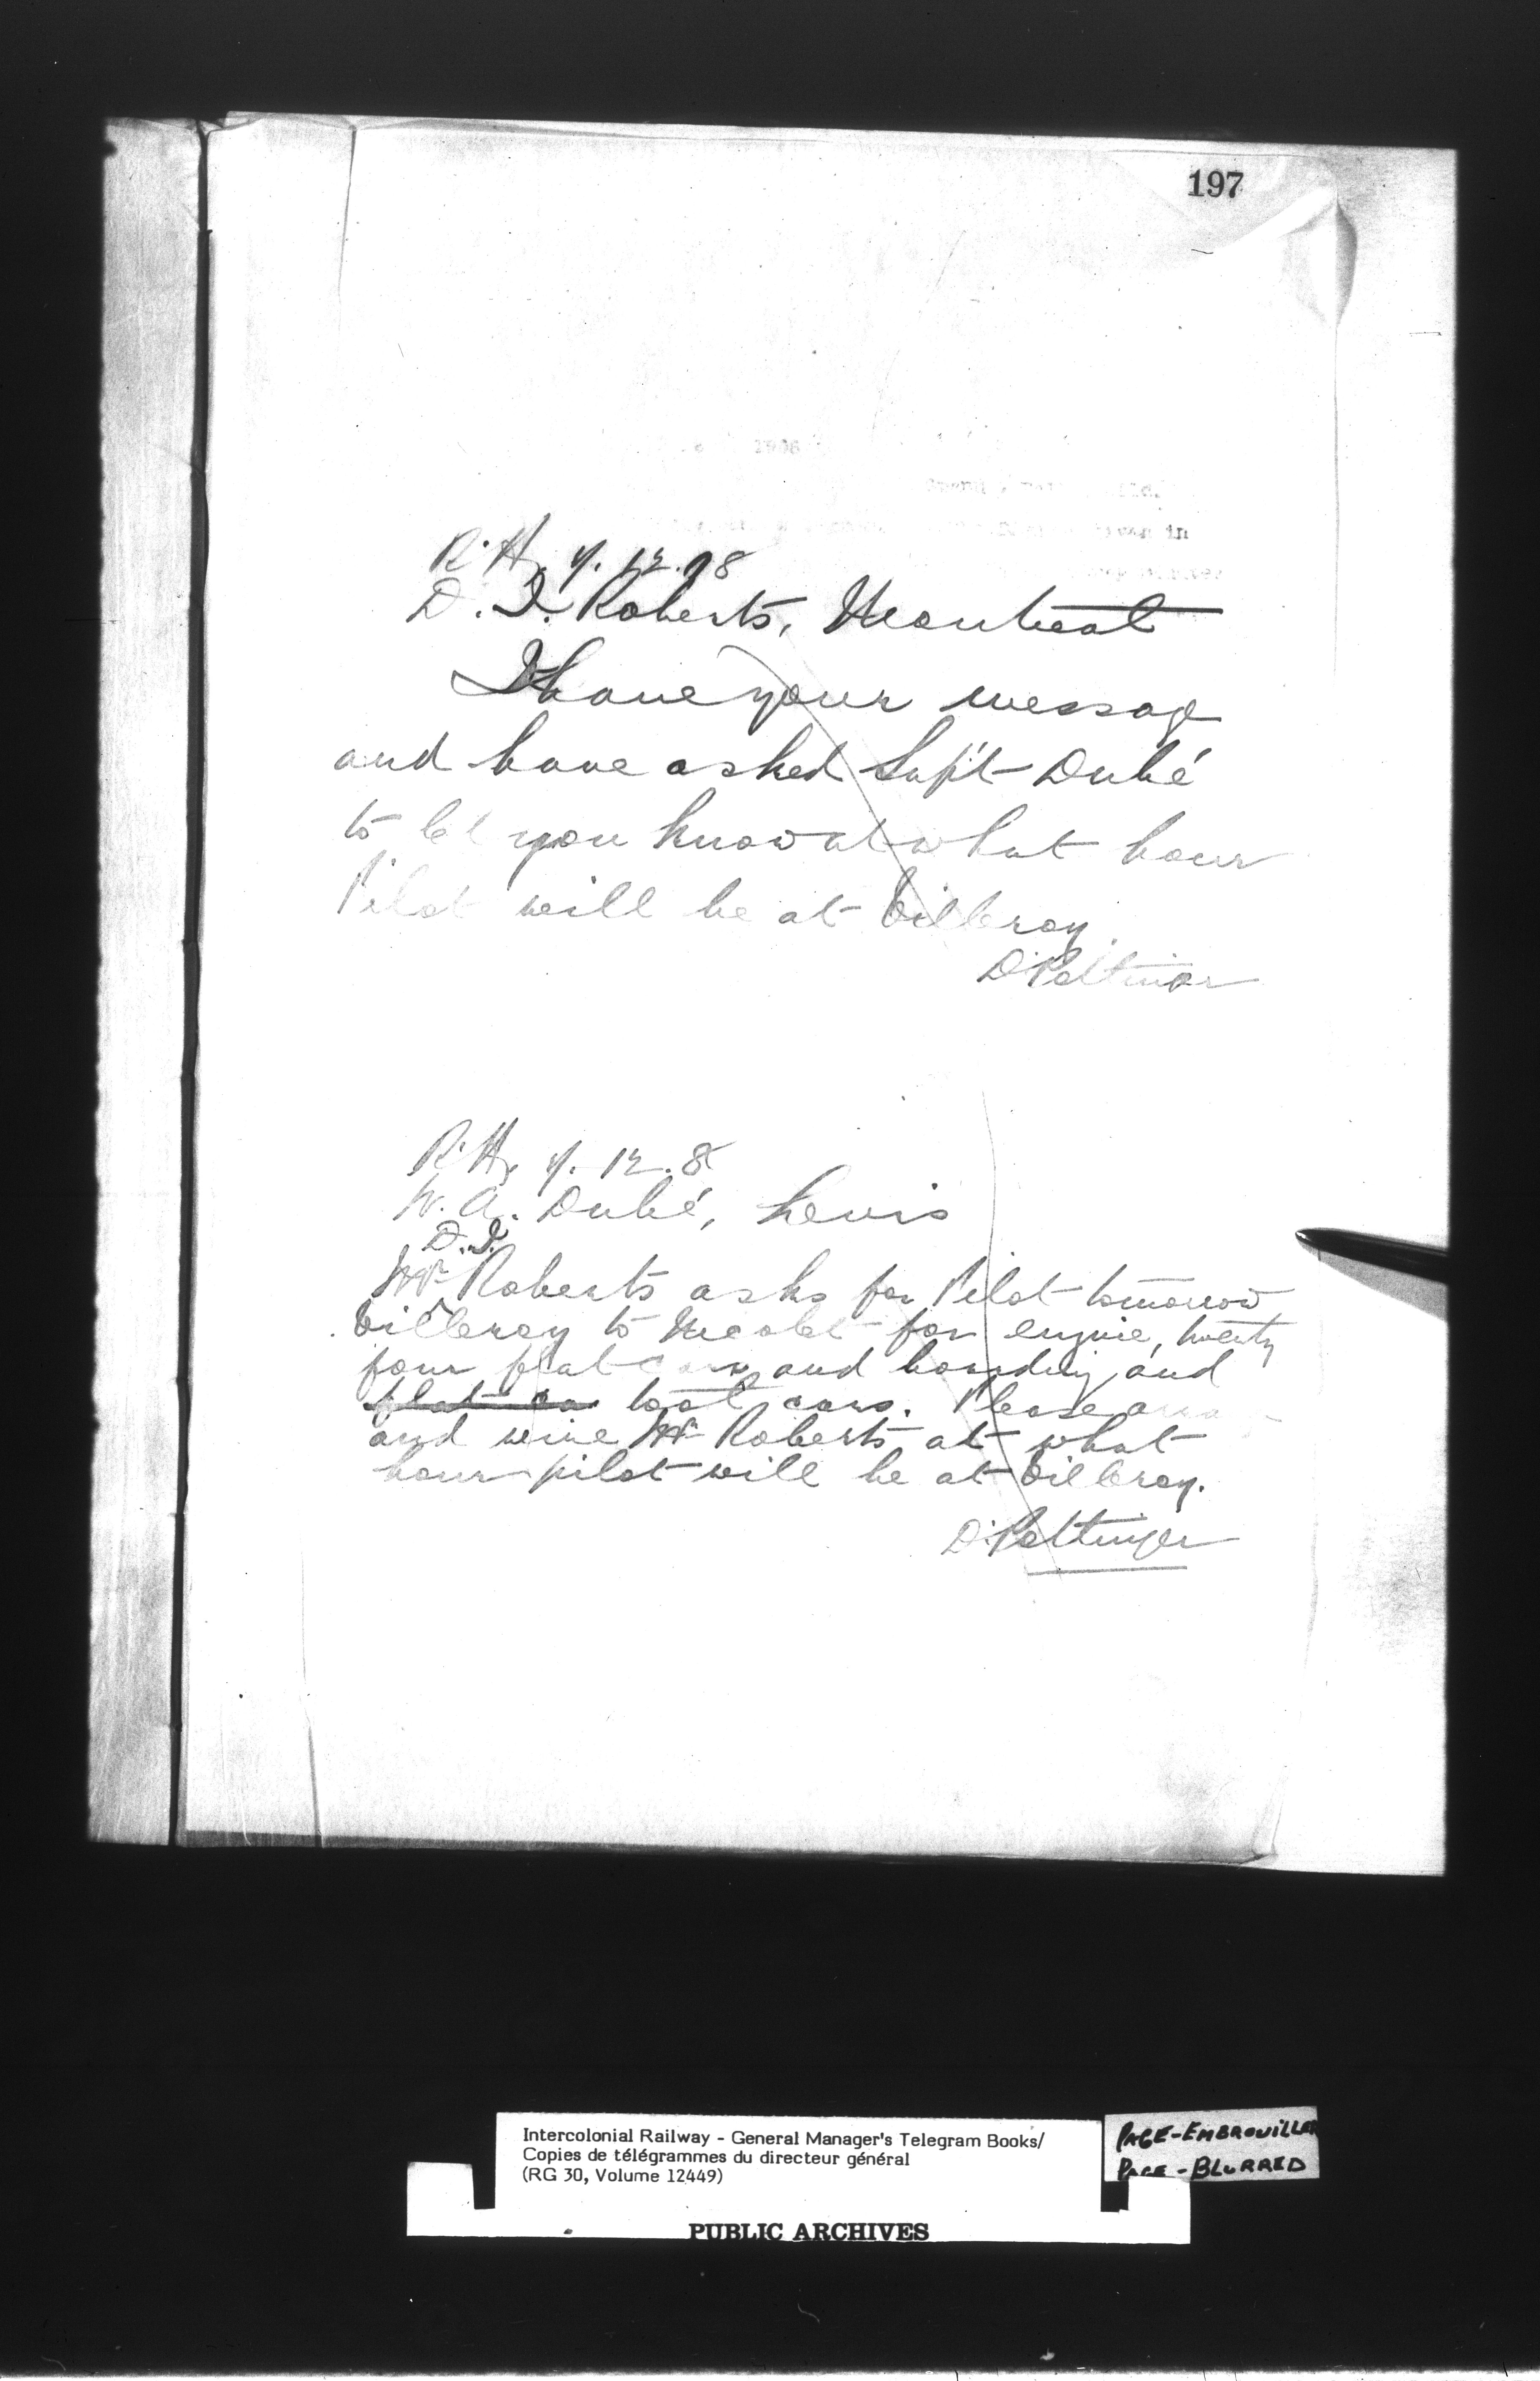 197
1908
in
R.H. 4.12.08
D. I. Roberts, Montreal
I have your message
and have asked Sup't Dubé
to let you know at what hour
Pilot will be at Villeroy.
D. Pottinger
R.H. 4.12.8
W. A. Dubé, Levis
D. I.
Mr Roberts asks for Pilot tomorrow
Villeroy to Nicolet for engine, twenty
four flat cars and boarding and
flat ca tool cars. Please
and wire Mr Roberts at what
hour pilot will be at Villeroy.
D. Pottinger
Intercolonial Railway - General Manager's Telegram Books/
Copies de télégrammes du directeur général
(RG 30, Volume 12449)
PAGE-EMBROUILLER
PAGE-BLURRED
PUBLIC ARCHIVES